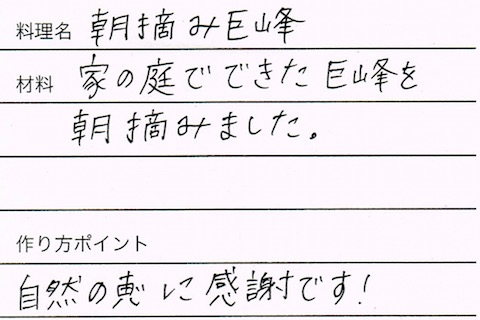 料理名 朝摘み巨峰
材料 家の庭でできた巨峰を
朝摘みました。
作り方ポイント
自然の恵に感謝です!